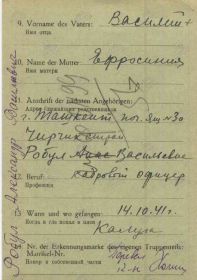 9. Vorname des Vaters: Василий
Имя отца
10. Name der Mutter: Ефросиния
Имя матери
11. Anschrift der nächsten Angehörigen:
Адрес ближайших родственников
г. Ташкент поч. ящ. № 30
Чирчикстрой
Робул Васильевне
12. Beruf: кадровой офицер
Профессия
13. Wann und wo gefangen: 14.10.41 г.
Когда и где попал в плен
Калуга
14. Nr. der Erkennungsmarke des eigenen Truppenteils:
Matrikel-Nr.
Номер в собственной части
Робул Александр Васильевич